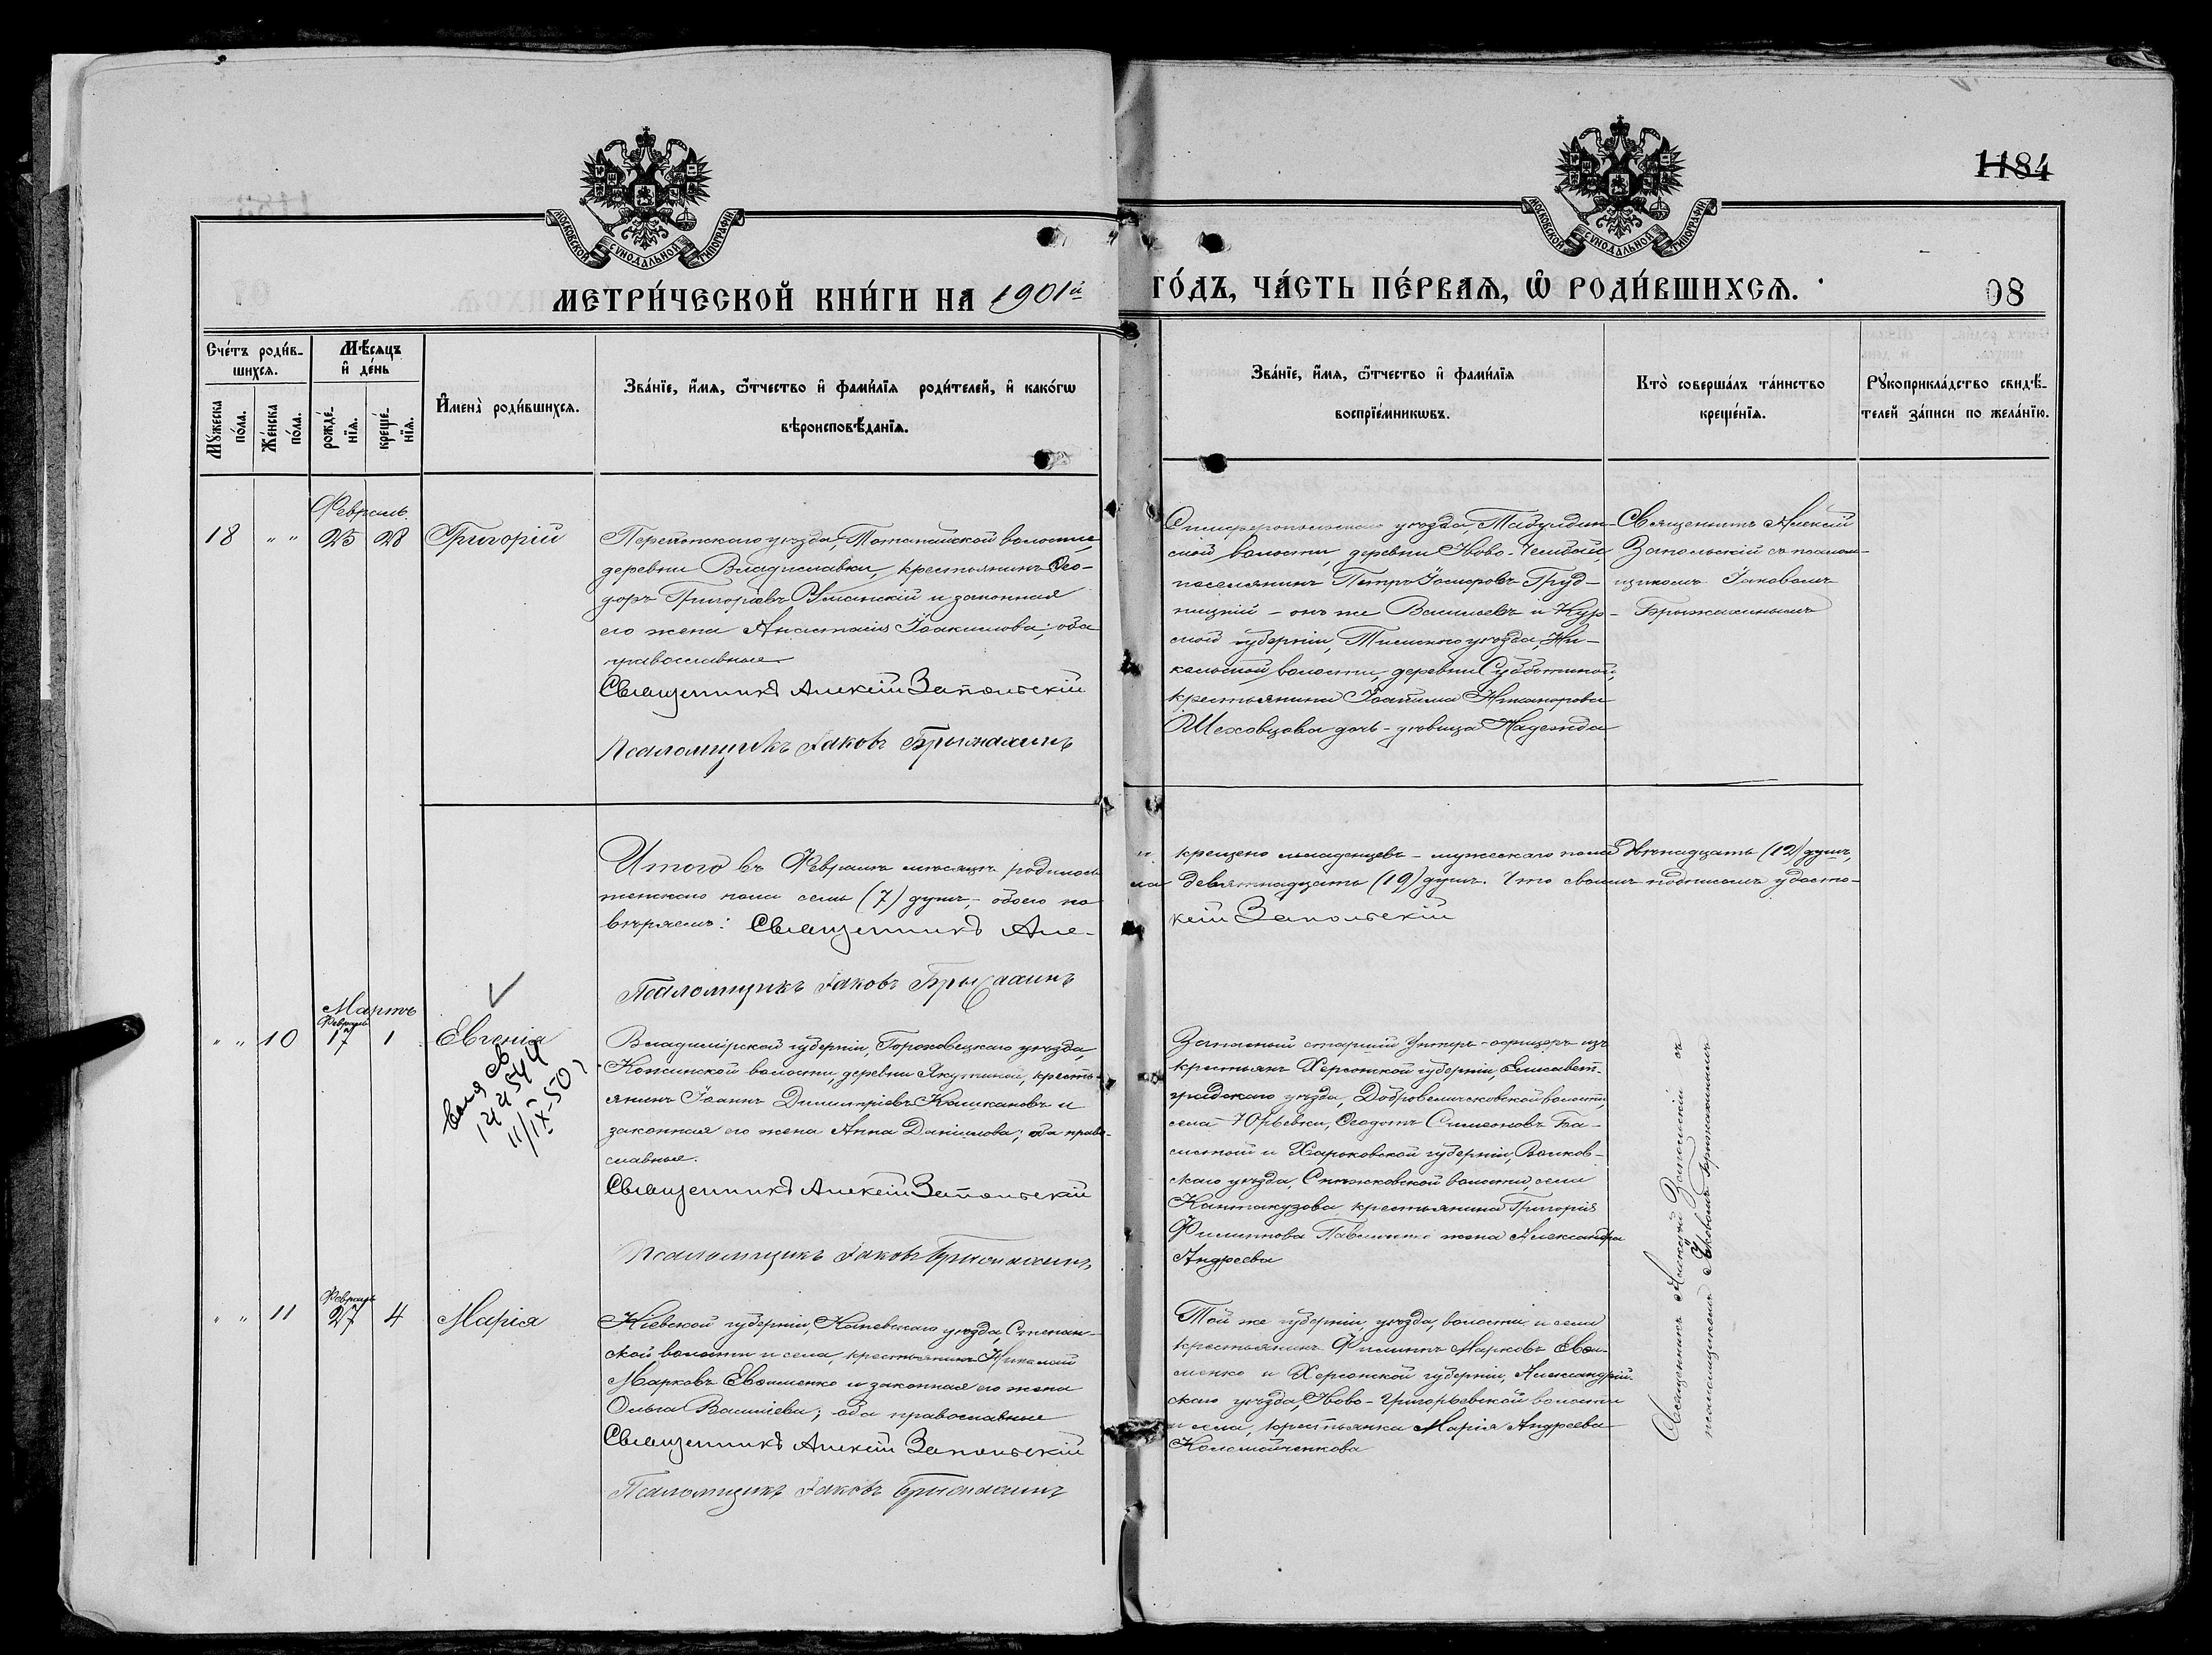 1184
МОСКОВСКОЙ СѴНОДАЛЬНОЙ ТИПОГРАФІИ
МОСКОВСКОЙ СѴНОДАЛЬНОЙ ТИПОГРАФІИ
МЕТРИ́ЧЕСКОЙ КНИ́ГИ НА 1901й ГО́ДЪ, ЧА́СТЬ ПЕ́РВАѦ, Ѽ РОДИ́ВШИХСѦ.
98
Сче́тъ роди́в-
шихсѧ.
Мꙋ́жеска по́ла.
Же́нска по́ла.
Мѣ́сѧцъ
и҆ де́нь
рожде́-
нїѧ.
креще́-
нїѧ.
И҆мена̀ роди́вшихсѧ.
Зва́нїе, и҆́мѧ, ѻ҆́тчество и҆ фами́лїѧ роди́телей, и҆ како́гѡ
вѣроисповѣ́данїѧ.
Зва́нїе, и҆́мѧ, ѻ҆́тчество и҆ фами́лїѧ
воспрїе́мникѡвъ.
Кто̀ соверша́лъ та́инство
креще́нїѧ.
Рꙋкоприкла́дство свидѣ́-
телей за́писи по жела́нїю.
Февраль
18 " " 25 28 Григорій
Перекопскаго уѣзда,
деревни Владиславки, крестьянинъ Ѳео-
доръ Григоріевъ Уманскій и законная
его жена Анастасія Іоакимова; оба
православные
Священникъ Алексій Запольскій
Псаломщикъ Іаковъ Брыжахинъ
Симферопольскаго уѣзда, Табулдин-
ской волости, деревни Ново-
поселянинъ Петръ Груд-
ницкій – онъ же Васильевъ и Кур-
ской губерніи, Тимскаго уѣзда, Ни-
кольской волости, деревни Субботиной,
крестьянина Іоакима Никанорова
Шеховцова дочь - дѣвица Надежда
Священникъ Алексій
Запольскій съ псалом-
щикомъ Іаковомъ
Брыжахинымъ
Итого въ Февралѣ мѣсяцѣ родилось и крещено младенцевъ – мужескаго пола двѣнадцать (12) душъ,
женскаго пола семь (7) душъ, - обоего по ла девятнадцать (19) душъ. Что своимъ подписомъ удосто-
вѣряемъ: Священникъ Але- ксій Запольскій
Псаломщикъ Іаковъ Брыжахинъ
Мартъ
Февраль
" " 10 17 1 Евгенія
11/IX-50
Владимірской губерніи, Гороховецкаго уѣзда,
Кожинской волости, деревни Якутиной, кресть-
янинъ Іоаннъ Димитріевъ Каликановъ и
законная его жена Анна Даніилова; оба право-
славные.
Священникъ Алексій Запольскій
Псаломщикъ Іаковъ Брыжахинъ
Запасной старшій унтеръ-офицеръ изъ
крестьянъ Херсонской губерніи, Елисавет-
градскаго уѣзда, Добровеличковской волости,
села Юрьевки, Ѳеодотъ Симеоновъ Ба-
и Харьковской губерніи, Валков-
скаго уѣзда, Снѣжковской волости, села
Кантакузова крестьянина Григорія
Филиппова жена Александра
Андреева
Священникъ Алексій Запольскій съ
псаломщикомъ Іаковомъ Брыжахинымъ
Февраль
" " 11 27 4 Марія
Кіевской губерніи, Каневскаго уѣзда, Степан-
ской волости и села, крестьянинъ Николай
Марковъ Евдименко и законная его жена
Ольга Василіева; оба православные
Священникъ Алексій Запольскій
Псаломщикъ Іаковъ Брыжахинъ
Той же губерніи, уѣзда, волости и села
крестьянинъ Филиппъ Марковъ Евди-
менко и Херсонской губерніи, Александрій-
скаго уѣзда, Ново-Григорьевской волости
и села, крестьянка Марія Андреева
Коломойченкова